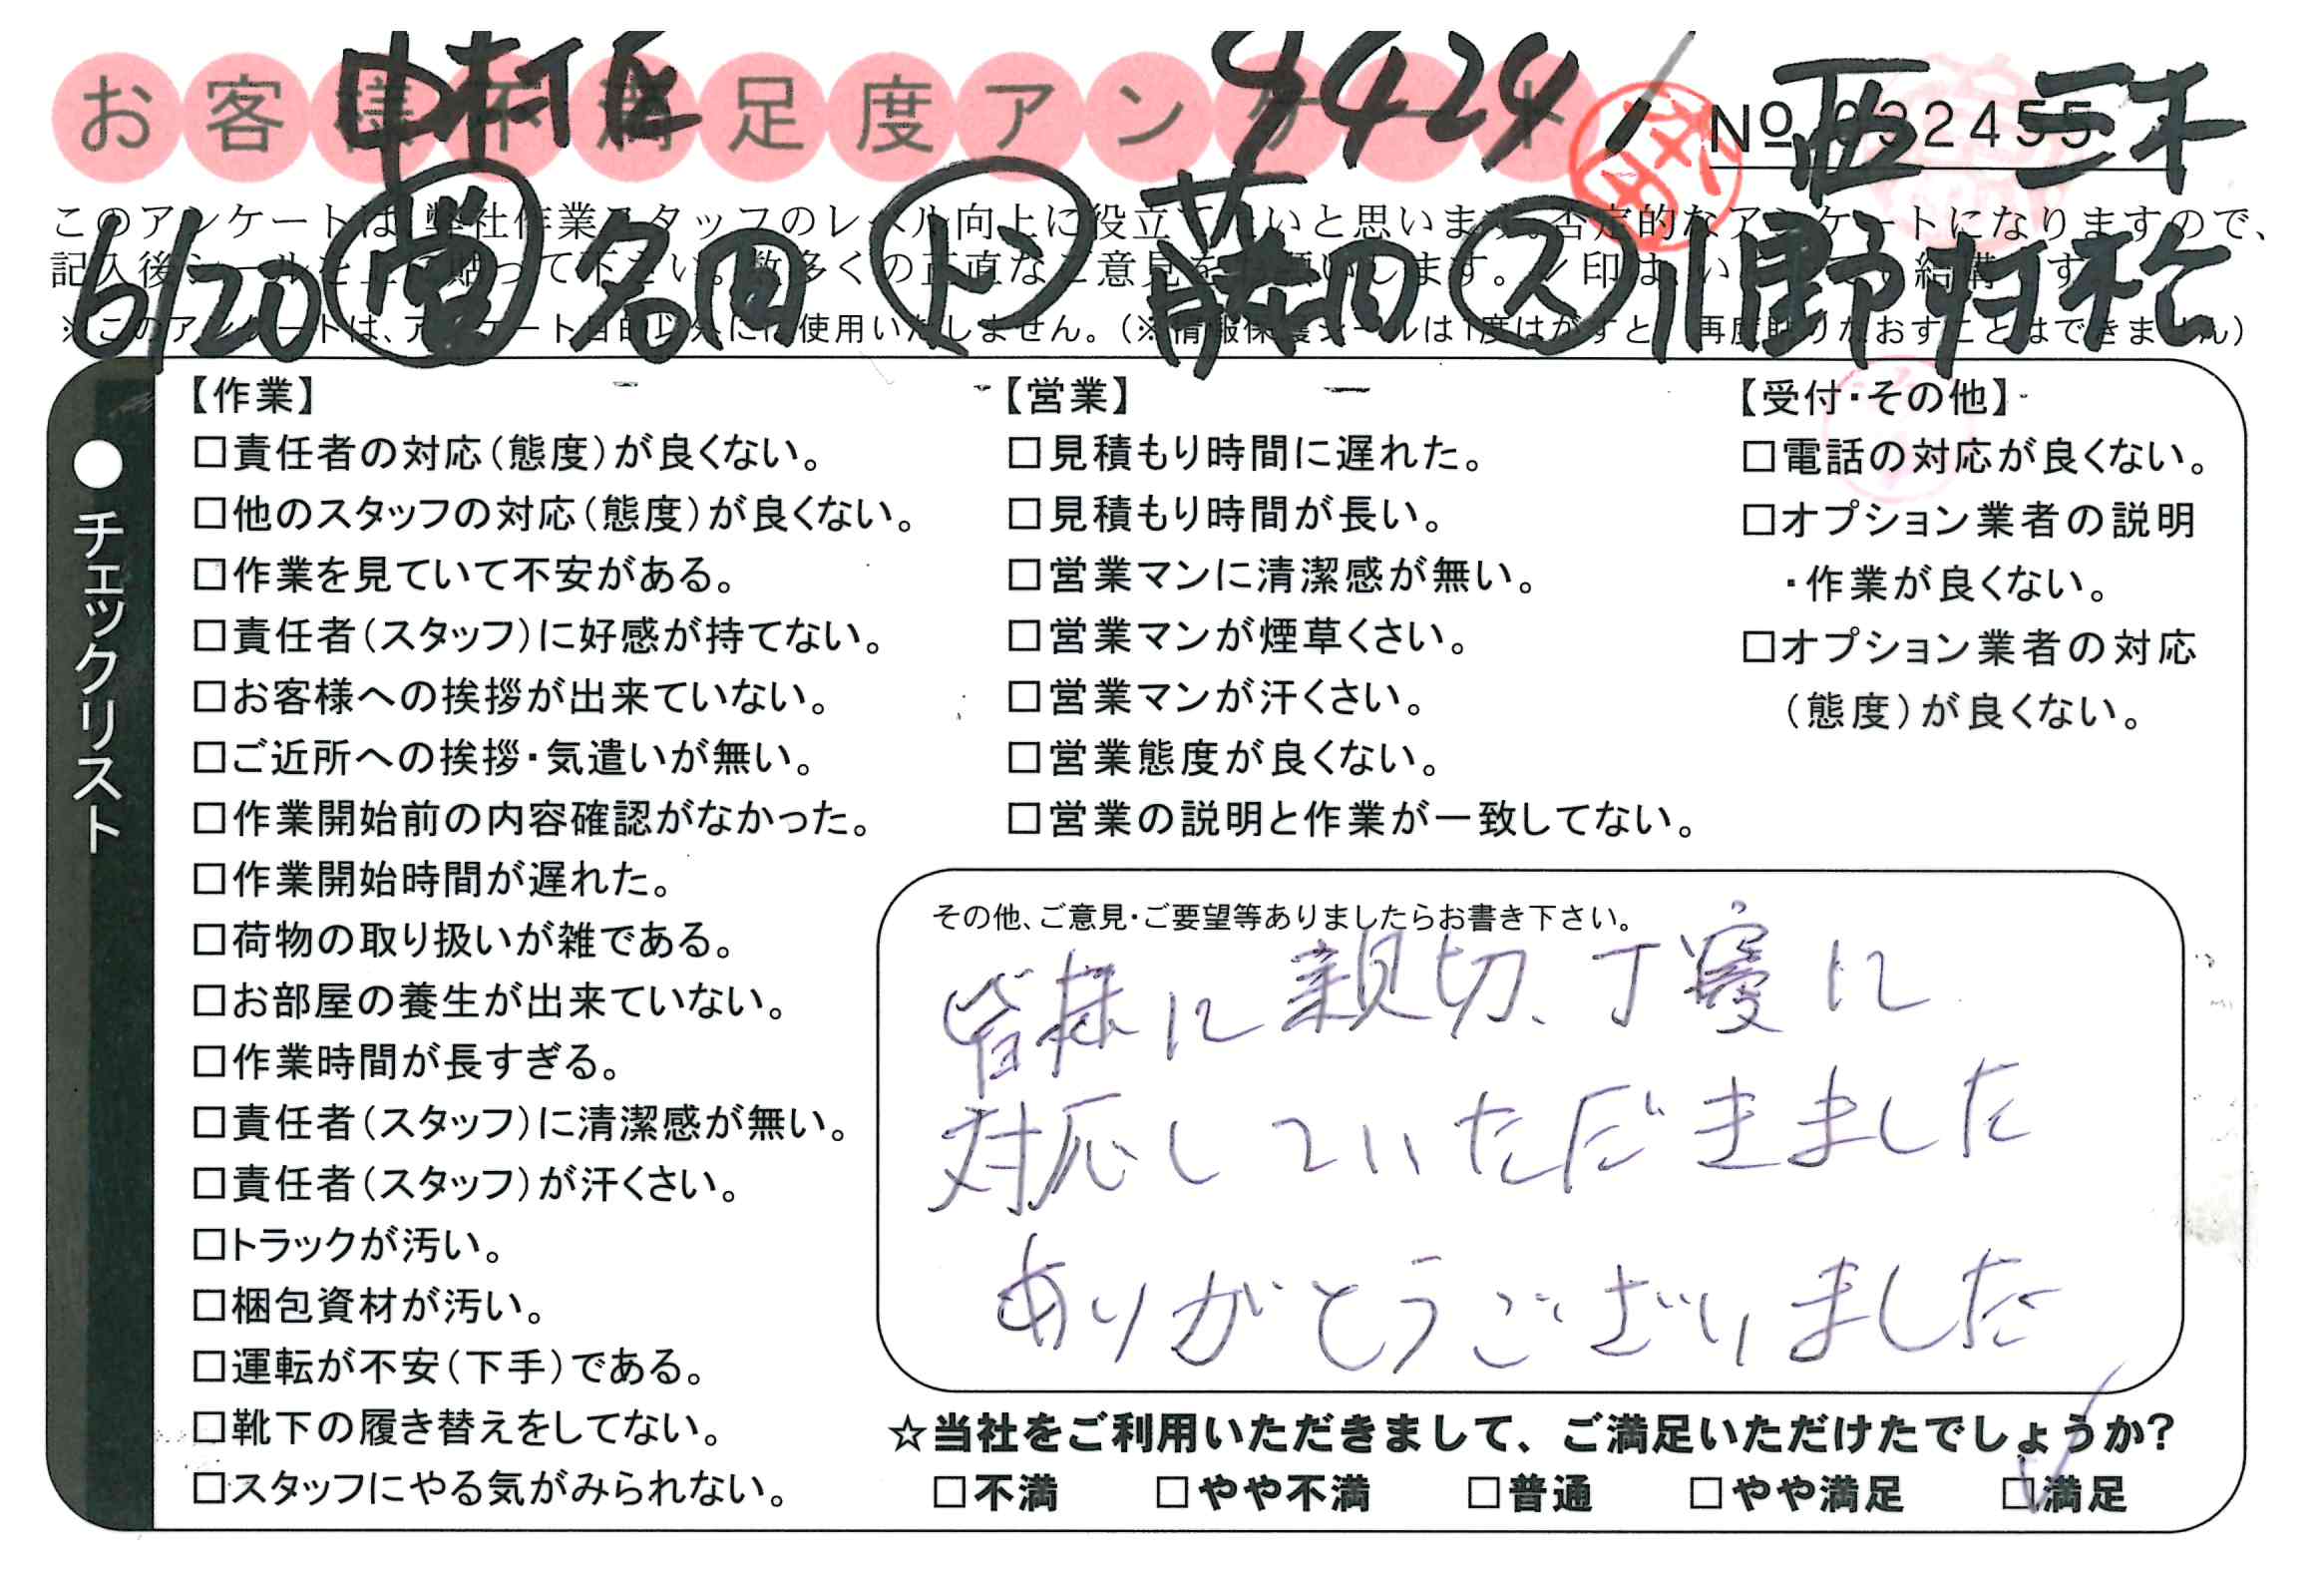 お客様不満足度アンケート
中村 佐
9424
西 三木
No 032455
このアンケートは、弊社作業スタッフのレベル向上に役立てたいと思います。否定的なアンケートになりますので、
記入後シールを上に貼って下さい。数多くの正直なご意見をお願いします。✓印はいくつでも結構です。
6/20 営 名田 ト 藤田 ス 小野 村松
※このアンケートは、アンケート目的以外には使用いたしません。（※情報保護シールは1度はがすと、再度貼りなおすことはできません）
●チェックリスト
【作業】
□責任者の対応（態度）が良くない。
□他のスタッフの対応（態度）が良くない。
□作業を見ていて不安がある。
□責任者（スタッフ）に好感が持てない。
□お客様への挨拶が出来ていない。
□ご近所への挨拶・気遣いが無い。
□作業開始前の内容確認がなかった。
□作業開始時間が遅れた。
□荷物の取り扱いが雑である。
□お部屋の養生が出来ていない。
□作業時間が長すぎる。
□責任者（スタッフ）に清潔感が無い。
□責任者（スタッフ）が汗くさい。
□トラックが汚い。
□梱包資材が汚い。
□運転が不安（下手）である。
□靴下の履き替えをしてない。
□スタッフにやる気がみられない。
【営業】
□見積もり時間に遅れた。
□見積もり時間が長い。
□営業マンに清潔感が無い。
□営業マンが煙草くさい。
□営業マンが汗くさい。
□営業態度が良くない。
□営業の説明と作業が一致してない。
【受付・その他】
□電話の対応が良くない。
□オプション業者の説明
・作業が良くない。
□オプション業者の対応
（態度）が良くない。
その他、ご意見・ご要望等ありましたらお書き下さい。
皆様に親切、丁寧に
対応していただきました
ありがとうございました
☆当社をご利用いただきまして、ご満足いただけたでしょうか?
□不満 □やや不満 □普通 □やや満足 ☑満足